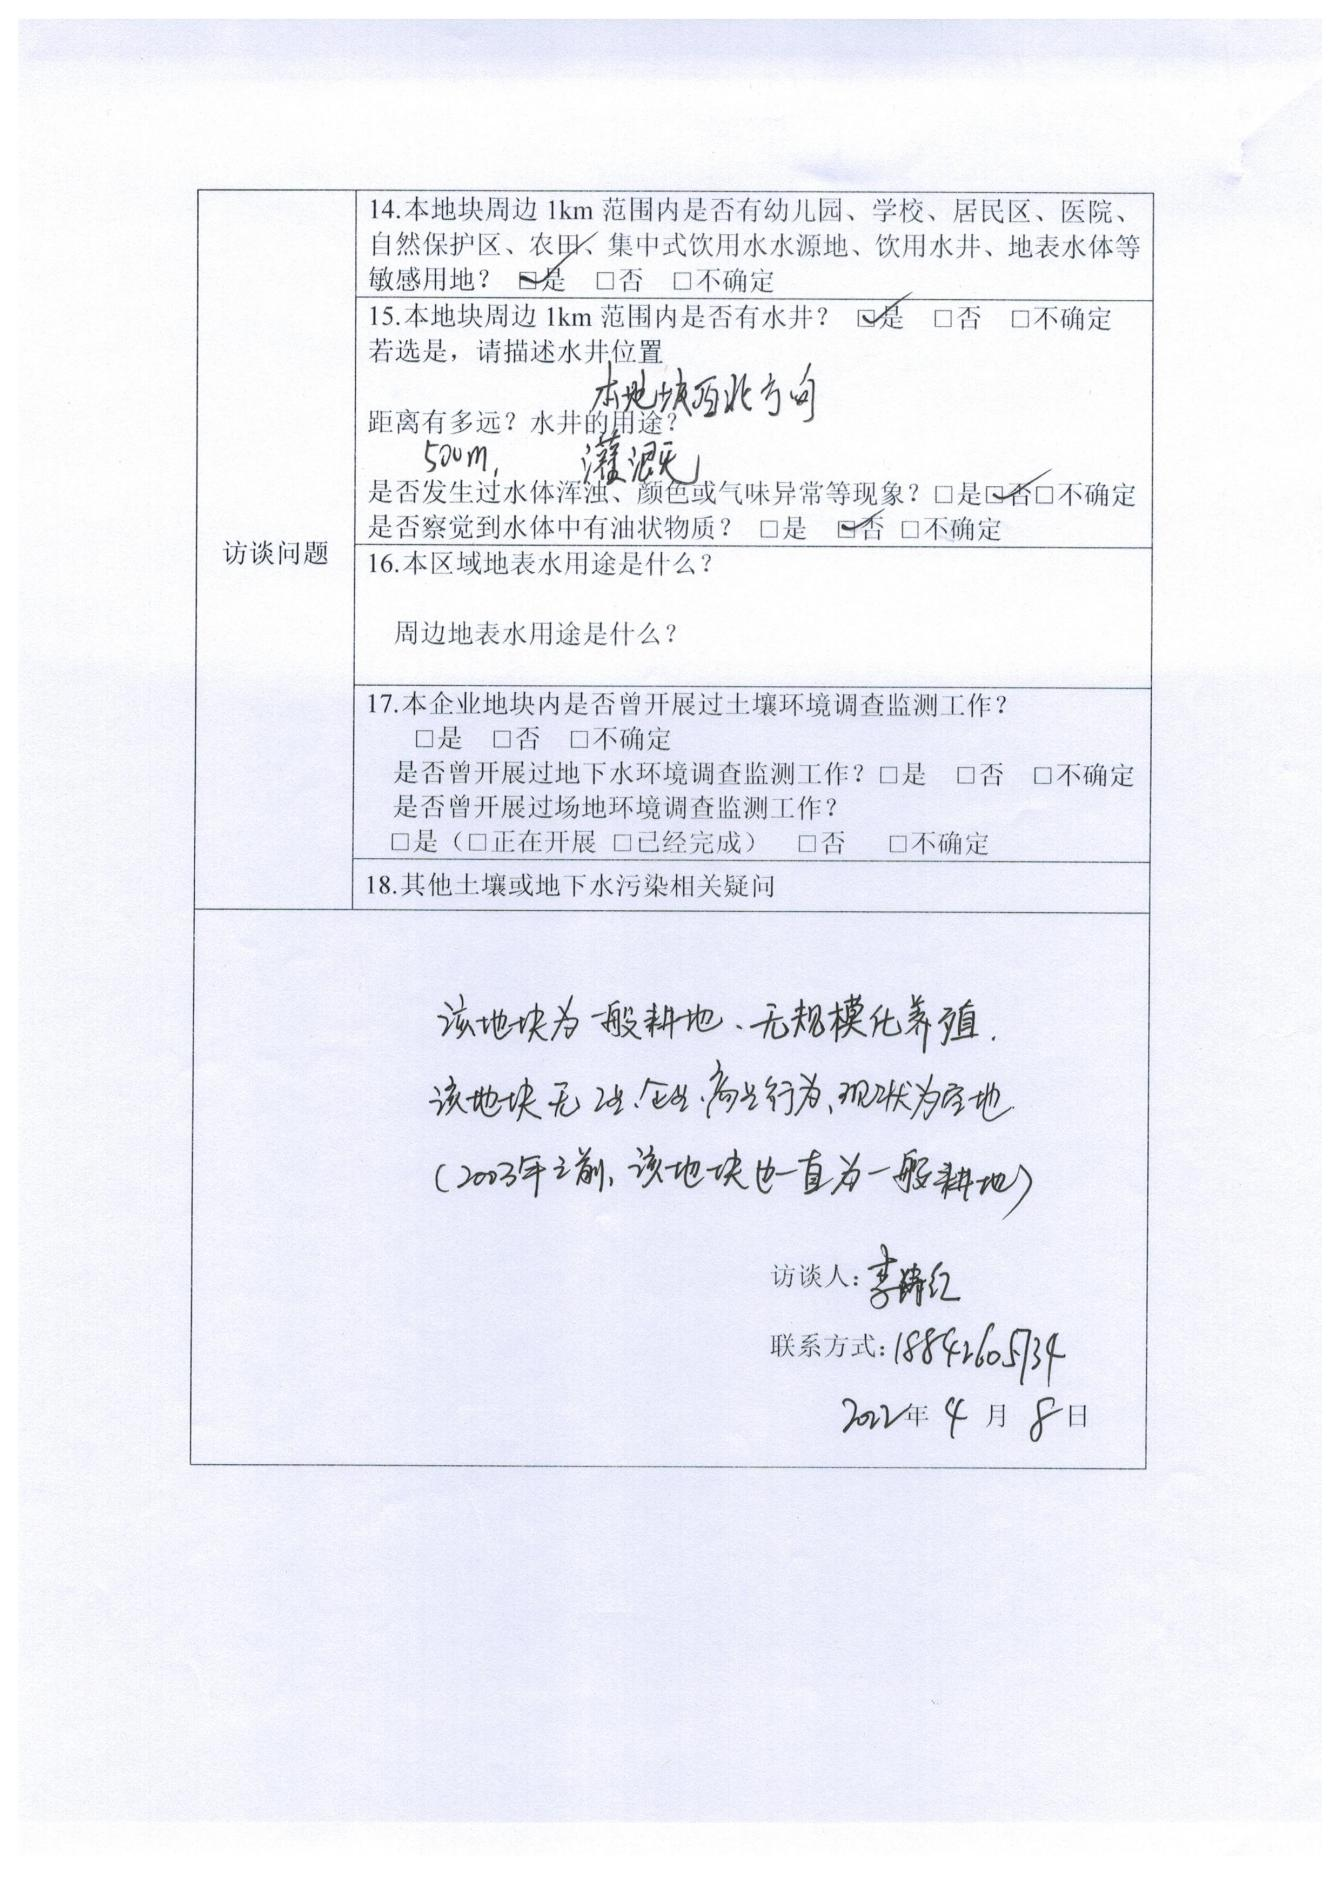 14.本地块周边 1km 范围内是否有幼儿园、学校、居民区、医院、
自然保护区、农田、集中式饮用水水源地、饮用水井、地表水体等
敏感用地？ ☑是 □否 □不确定
15.本地块周边 1km 范围内是否有水井？ ☑是 □否 □不确定
若选是，请描述水井位置
本地块西北方向
距离有多远？水井的用途？
500m, 灌溉
是否发生过水体浑浊、颜色或气味异常等现象？□是☑否□不确定
是否察觉到水体中有油状物质？ □是 ☑否 □不确定
访谈问题
16.本区域地表水用途是什么？
周边地表水用途是什么？
17.本企业地块内是否曾开展过土壤环境调查监测工作？
□是 □否 □不确定
是否曾开展过地下水环境调查监测工作？□是 □否 □不确定
是否曾开展过场地环境调查监测工作？
□是（□正在开展 □已经完成） □否 □不确定
18.其他土壤或地下水污染相关疑问
该地块为一般耕地、无规模化养殖.
该地块无工业、企业、商业行为、现状为空地.
(2003年之前、该地块也一直为一般耕地)
访谈人: 李红
联系方式: 18842605734
2022年 4 月 8 日